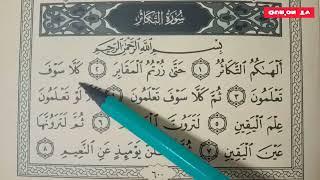 سُورَةُ التَّكَاثُرِ
بِسْمِ اللَّهِ الرَّحْمَٰنِ الرَّحِيمِ
أَلْهَىٰكُمُ التَّكَاثُرُ ١ حَتَّىٰ زُرْتُمُ الْمَقَابِرَ ٢ كَلَّا سَوْفَ
تَعْلَمُونَ ٣ ثُمَّ كَلَّا سَوْفَ تَعْلَمُونَ ٤ كَلَّا لَوْ تَعْلَمُونَ
عِلْمَ الْيَقِينِ ٥ لَتَرَوُنَّ ٦ ثُمَّ لَتَرَوُنَّهَا
عَيْنَ الْيَقِينِ ٧ يَوْمَئِذٍ عَنِ النَّعِيمِ ٨